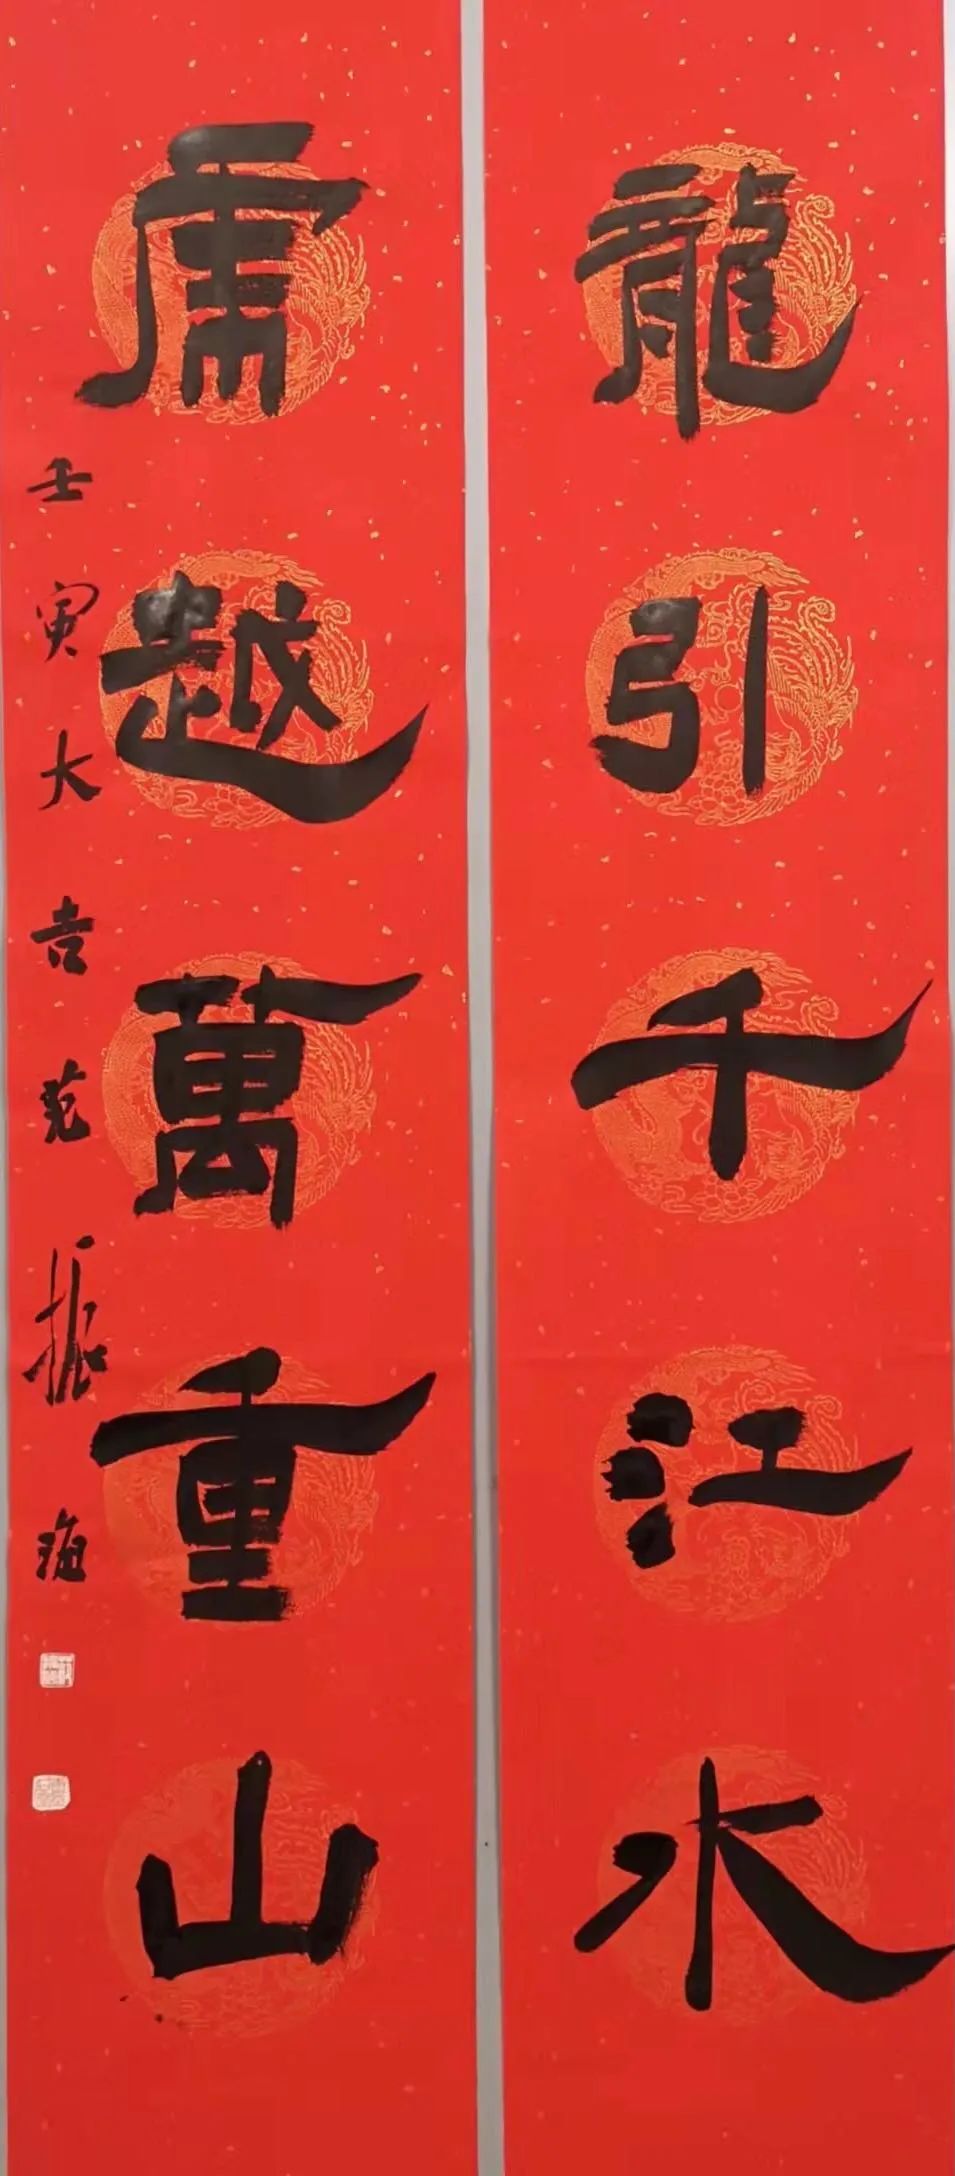 龍引千江水
虎越萬重山
壬寅大吉范振海